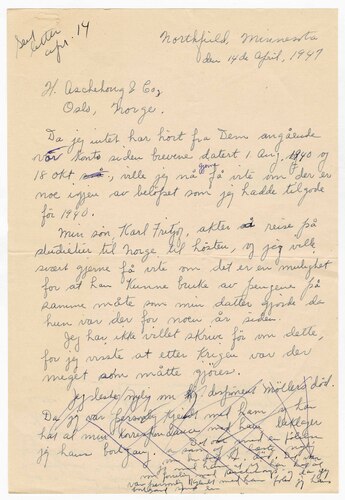 Sent
letter
apr. 14
Northfield, Minnesota
den 14de April, 1947
H. Aschehoug & Co,
Oslo, Norge.
Da jeg intet har hört fra Dem angående
vor konto siden brevene datert 1 Aug. 1940 og
15 okt vilde jeg nå gjerne få vite om der er
noe igjen av belöpet som jeg hadde tilgode
för 1940.
Min sön, Karl Fritjof, akter å reise på
studietur til Norge til hösten, og jeg vilde
svært gjerne få vite om det er en mulighet
for at han kunne bruke av pengene på
samme måte som min datter gjorde da
hun var der for noen år siden.
Jeg har ikke villet skrive för om dette,
for jeg visste at etter krigen var der
meget som måtte gjöres.
Jeg leste nylig om Möllers död.
Da jeg var personlig kjent med ham og har
hatt all min korrespondanse med ham beklager
jeg hans bortgang